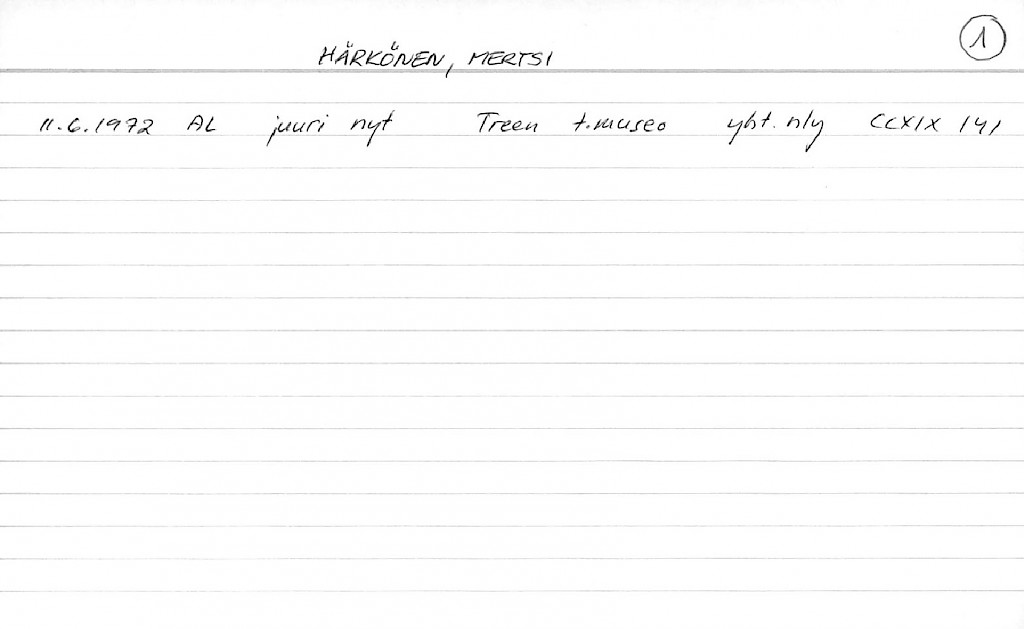 1
HÄRKÖNEN, MERTSI
11.6.1972 AL juuri nyt Treen t.museo yht. nly CCXIX 141